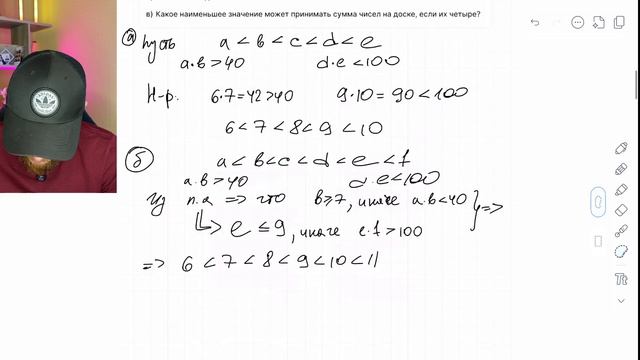 в) Какое наименьшее значение может принимать сумма чисел на доске, если их четыре?
а) Пусть a < b < c < d < e
a·b > 40 d·e < 100
Н-р: 6·7 = 42 > 40 9·10 = 90 < 100
6 < 7 < 8 < 9 < 10
б) a < b < c < d < e < f
a·b > 40 d·e < 100
Из п.а => что b ≥ 7, иначе a·b < 40
e ≤ 9, иначе e·f > 100 } =>
=> 6 < 7 < 8 < 9 < 10 < 11
Tt
adidas